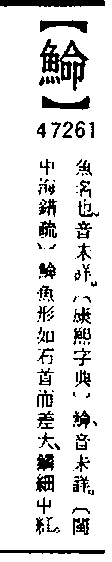 【鯩】
47261
魚名也、音未詳。〔康熙字典〕鯩、音未詳。〔閩
中海錯疏〕鯩魚形如石首而差大、鱗細中粗。